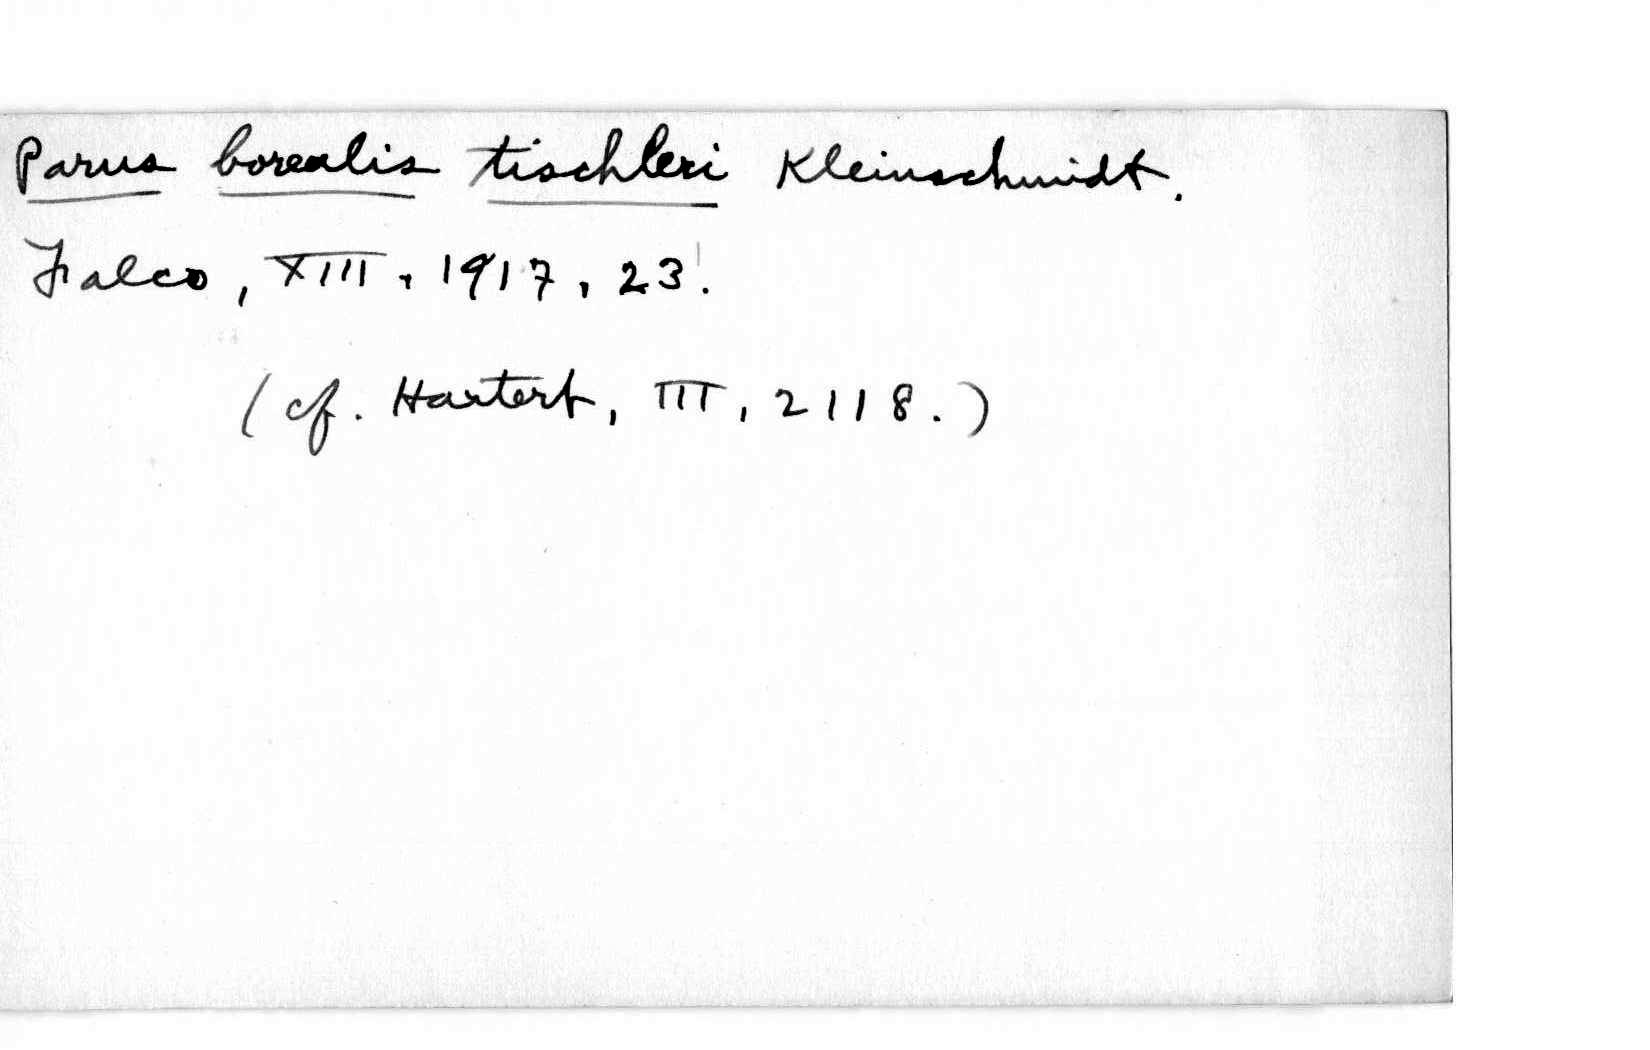 Parus borealis tischleri Kleinschmidt.
Falco, XIII, 1917, 23.
(cf. Hartert, III, 2118.)